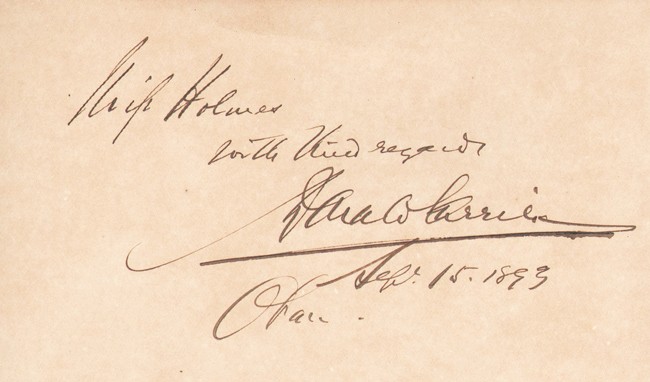 Miss Holmes
with kind regards
Sept. 15. 1893
Oban.